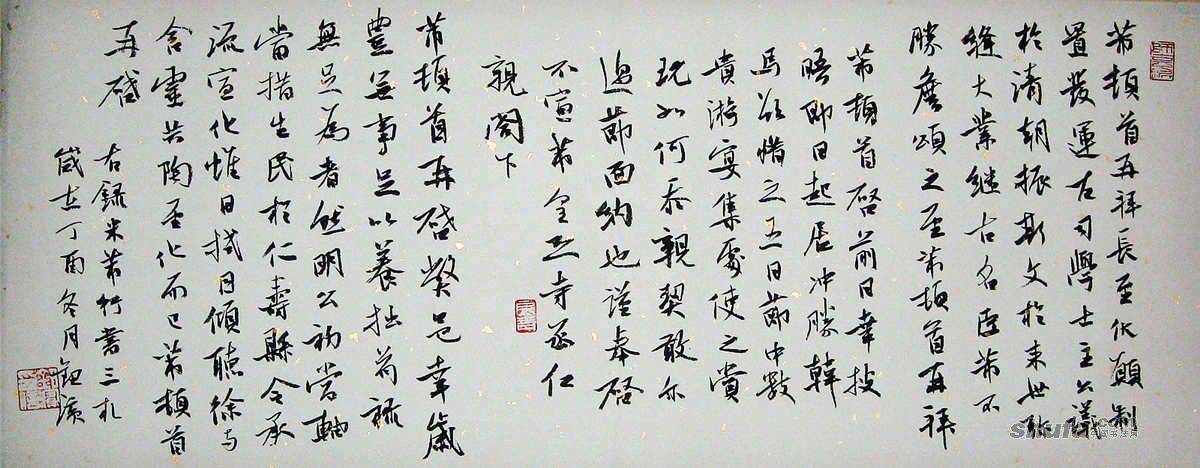 芾頓首再拜長至伏願制
置發運左司學士主公議
於清朝振斯文於来世弥
縫大業継古名臣芾不
勝詹頌之至芾頓首再拜
芾頓首啓前日幸披
晤即日起居冲勝韓
馬欲惜之五日節中數
貴游宴集處使之賞
玩如何忝親契敢尔
過節面納也謹奉啓
不宣芾皇恐寺丞仁
親閣下
芾頓首再啓弊邑幸歲
豊無事足以養拙苟祿
無足為者然明公初當軸
當措生民於仁壽縣令承
流宣化惟日拭目傾聽徐与
含靈共陶至化而已芾頓首
再啓
右録米芾行書三札
歲在丁酉冬月